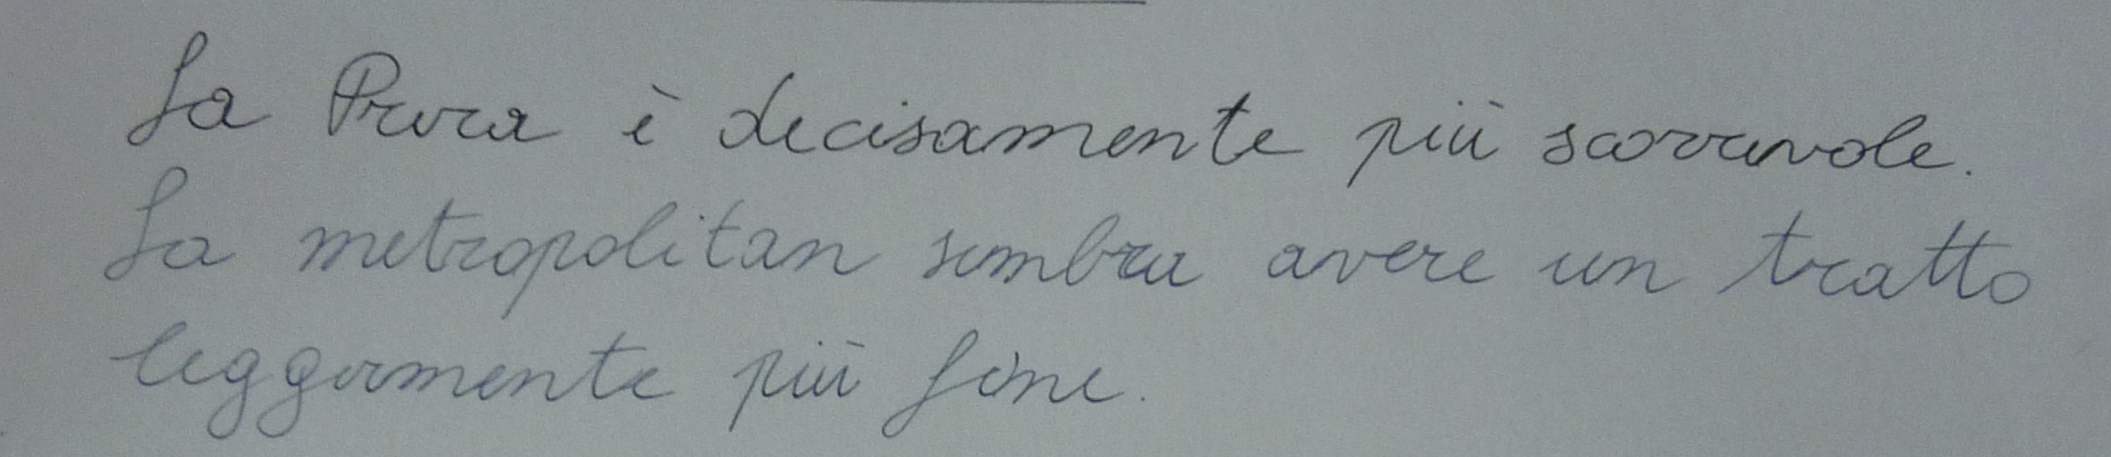 La Prera è decisamente più scorrevole.
La metropolitan sembra avere un tratto
leggermente più fine.